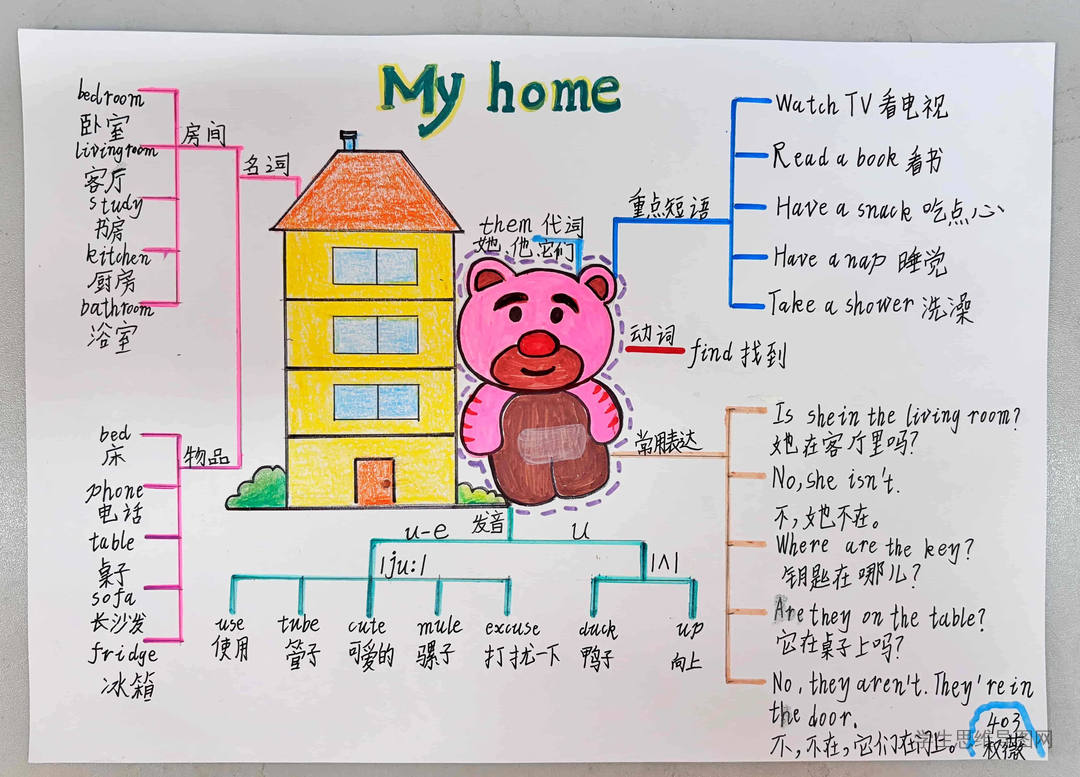 My home
bedroom
卧室
livingroom
客厅
study
书房
kitchen
厨房
bathroom
浴室
房间
名词
bed
床
phone
电话
table
桌子
sofa
长沙发
fridge
冰箱
物品
them 代词
她、他、它们
重点短语
Watch TV 看电视
Read a book 看书
Have a snack 吃点心
Have a nap 睡觉
Take a shower 洗澡
动词
find 找到
常用表达
Is she in the living room?
她在客厅里吗?
No, she isn't.
不,她不在。
Where are the key?
钥匙在哪儿?
Are they on the table?
它在桌子上吗?
No, they aren't. They're in
the door.
不,不在,它们在门上。
发音
u-e
/ju:/
use
使用
tube
管子
cute
可爱的
mule
骡子
excuse
打扰一下
u
/ʌ/
duck
鸭子
up
向上
403
权薇
学生思维导图网